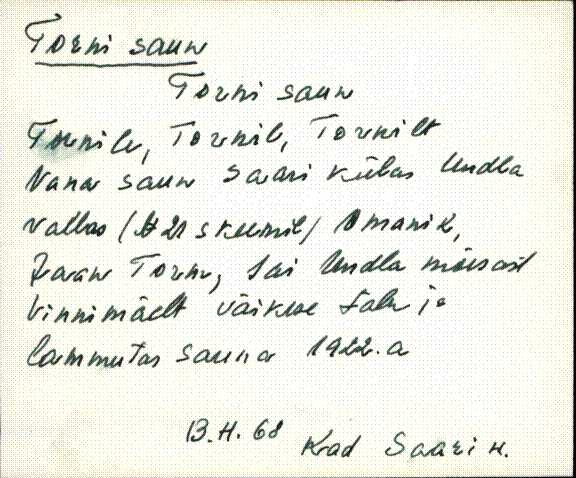 Torni saun
Torni saun
Tornile, Tornil, Tornilt
Vana saun Saari külas Undla
vallas (№ 21 skeemil) Omanik,
Jaan Torm, sai Undla mõisast
Vinnimäelt väikese talu ja
lammutas sauna 1922. a
B.H. 68 Krad Saari H.